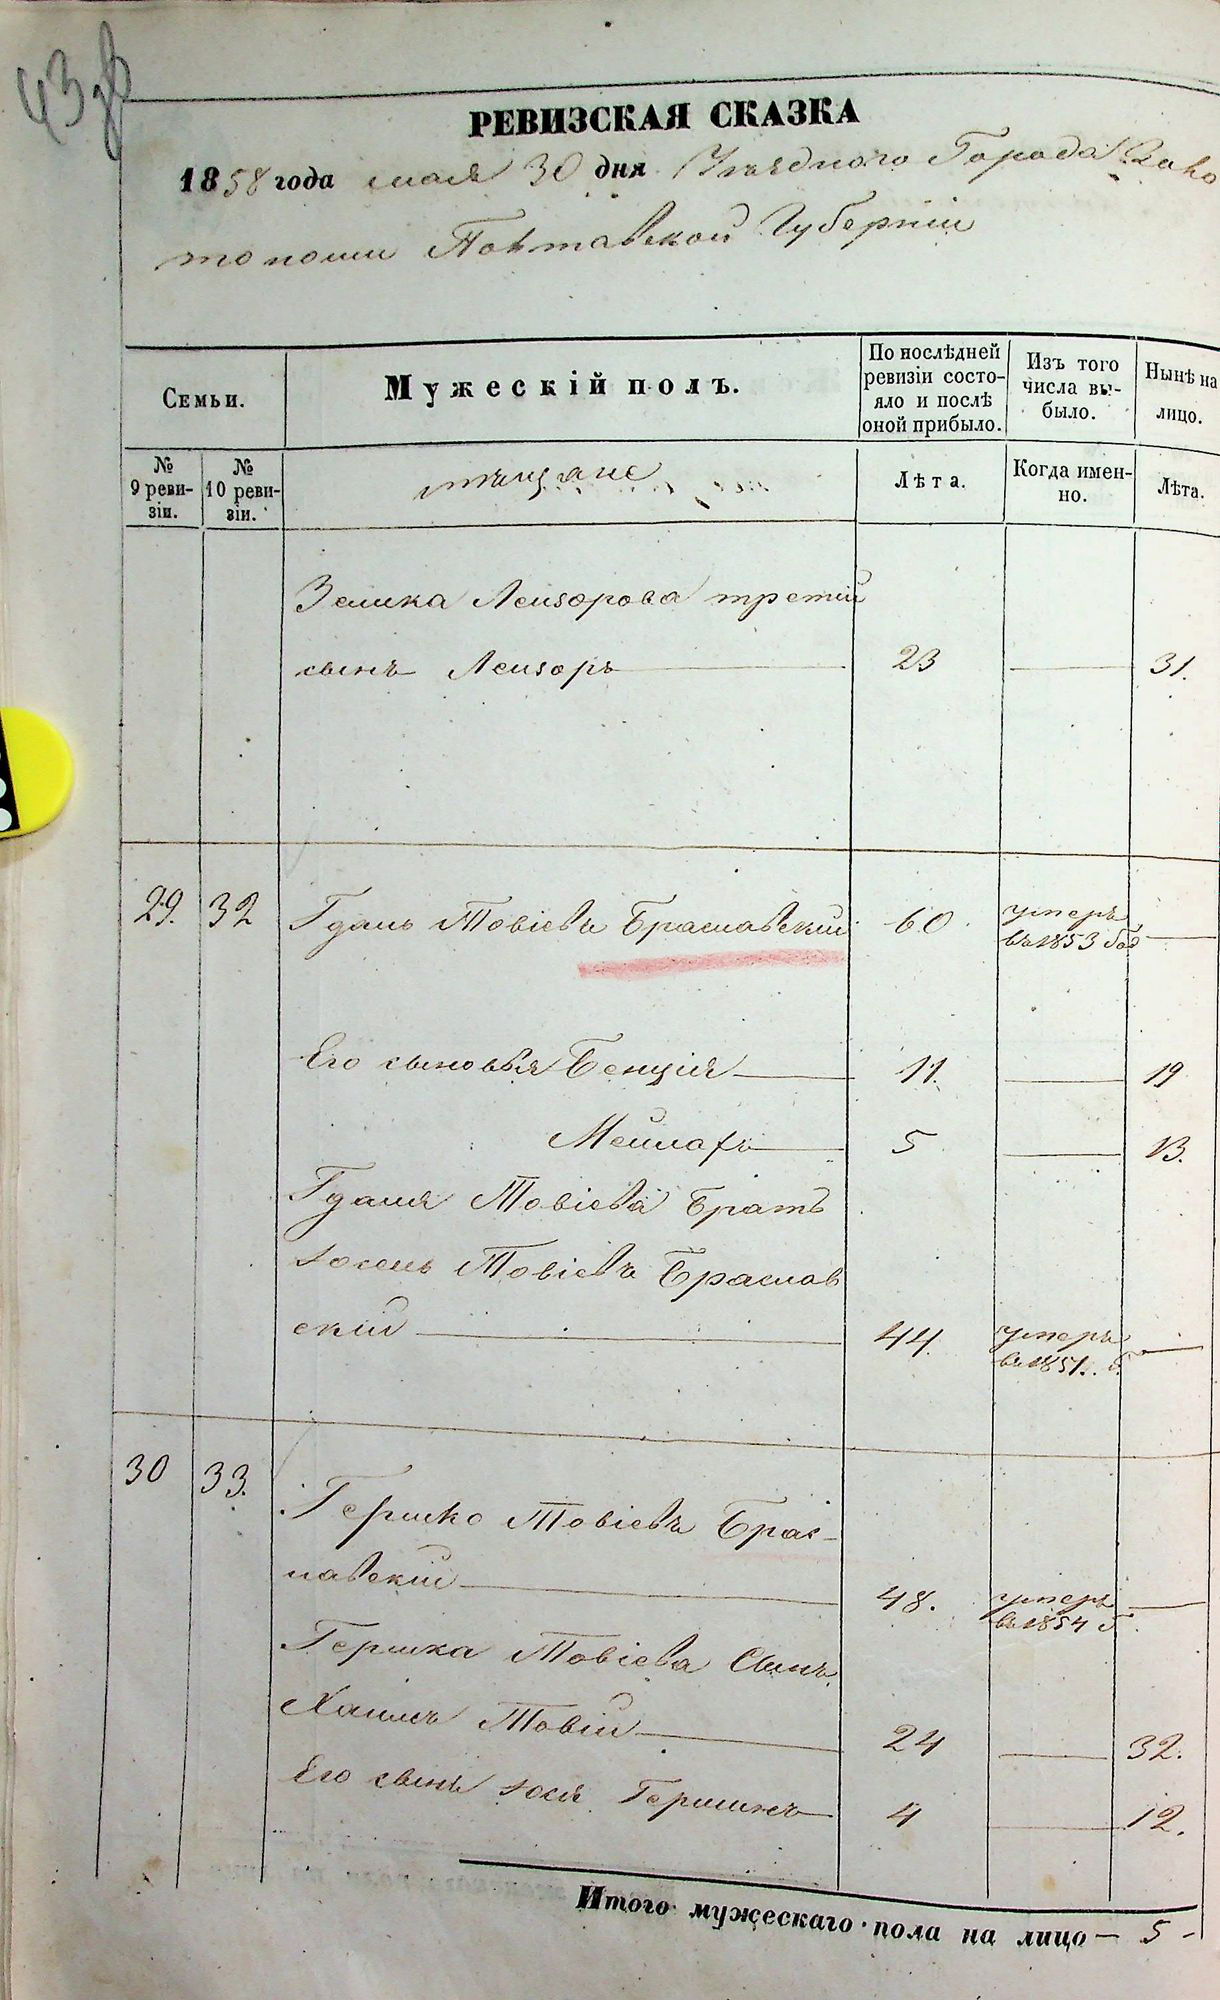 43 об
РЕВИЗСКАЯ СКАЗКА
1858 года мая 30 дня Уѣзднаго Города Золо
тоноши Полтавской Губерніи
Семьи.
Мужескій полъ.
По послѣдней ревизіи состо-яло и послѣ оной прибыло.
Изъ того числа вы-было.
Нынѣ на лицо.
№ 9 реви-зіи.
№ 10 реви-зіи.
мѣщане
Лѣта.
Когда имен-но.
Лѣта.
Зелика Лейзорова третій
сынъ Лейзоръ 23 31.
29. 32 Гдаль Товіевъ Браславскій 60 умеръ въ 1853 год
Его сыновья Бенція 11. 19
Мейлахъ 5 13.
Гдаля Товіева братъ
Іосель Товіевъ Браслав
скій 44. умеръ въ 1851. г.
30 33. Гершко Товіевъ Брас-
лавскій 48. умеръ въ 1854 г.
Гершка Товіева Сынъ
Хаимъ Товій 24 32.
Его сынъ Іося Гершинъ 4 12.
Итого мужескаго пола на лицо — 5 -